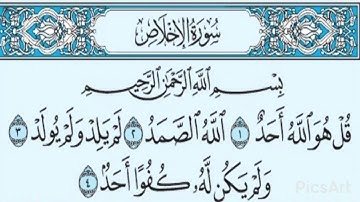 سُورَةُ الإِخْلَاصِ
بِسْمِ اللَّهِ الرَّحْمَٰنِ الرَّحِيمِ
قُلْ هُوَ ٱللَّهُ أَحَدٌ ١ ٱللَّهُ ٱلصَّمَدُ ٢ لَمْ يَلِدْ وَلَمْ يُولَدْ ٣
وَلَمْ يَكُن لَّهُۥ كُفُوًا أَحَدٌۢ ٤
PicsArt